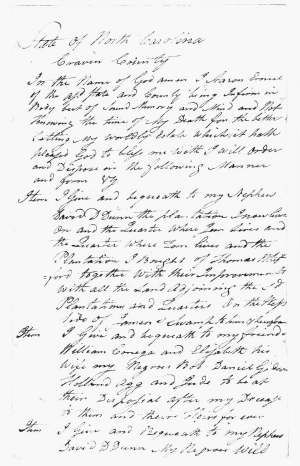 State of North Carolina
Craven County
In the Name of God amen I Aaron Ernul
of the afd State and County being Infirm in
Body but of Sound Memory and Mind and Not
knowing the time of My Death for the better
Settling My worldly Estate which it hath
pleased God to bless me with, I will Order
and Dispose in the following Manner
and form Viz
Item I Give and bequeath to my Nephew
David D Dunn the plantation I now live
On and the Quarter Where Tom lives and
the Quarter Where Tom lives and the
Plantation I Bought of Thomas
together With their Improvements
with all the Land Adjoining the Sd
Plantations and Quarters On the
Side of Swamp to him
Item I Give and bequeath to my friends
William and Elizabeth his
Wife my Negroes Bob Daniel
Holland and Jude to be at
their Disposal after my Decease
to them and their Heirs for ever
Item I Give and Bequeath to my Nephew
David D Dunn My Negroes Will